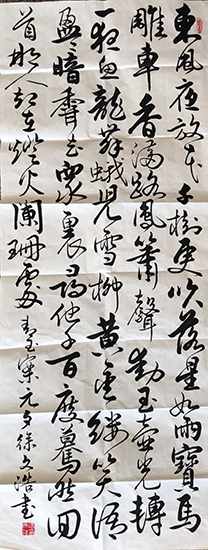 東風夜放花千樹更吹落星如雨寶馬
雕車香滿路鳳簫聲動玉壺光轉
一夜魚龍舞蛾兒雪柳黃金縷笑語
盈盈暗香去眾裏尋他千百度驀然回
首那人却在燈火闌珊處青玉案元夕徐文浩書